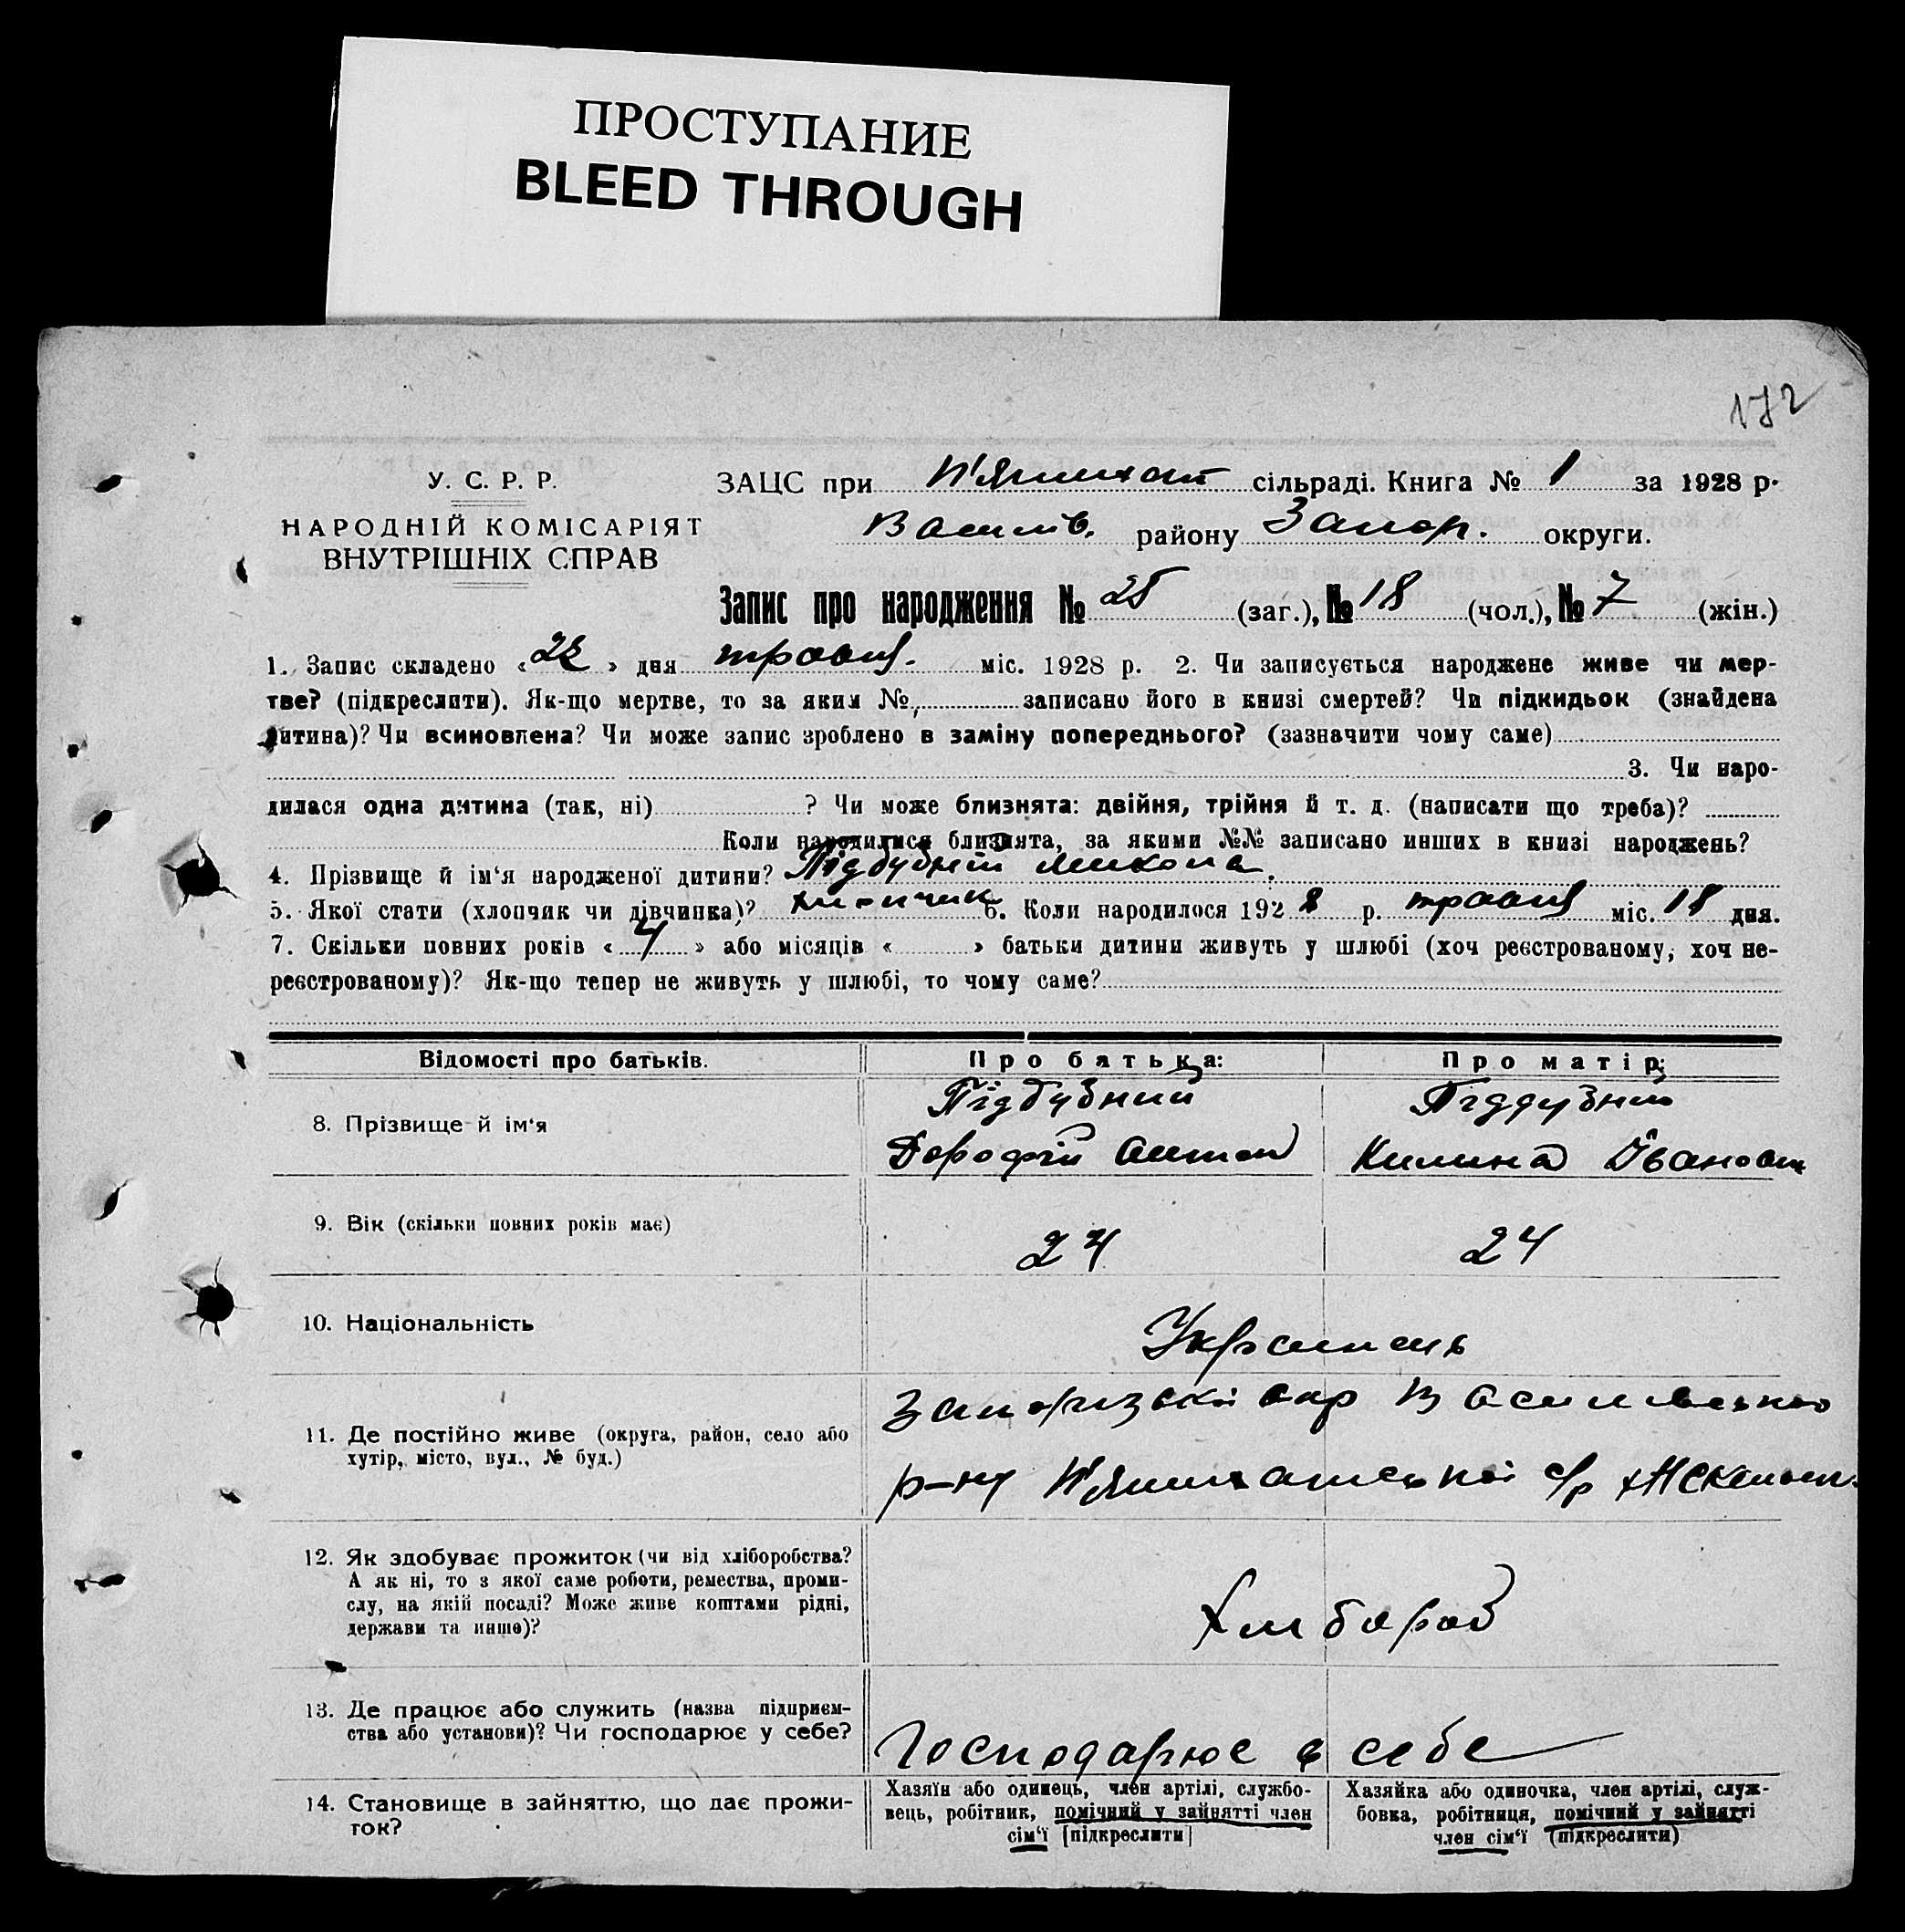 ПРОСТУПАНИЕ
BLEED THROUGH
172
У. С. Р. Р.
НАРОДНІЙ КОМІСАРІЯТ
ВНУТРІШНІХ СПРАВ
ЗАЦС при П'ятихат сільраді. Книга № 1 за 1928 р.
Василів. району Запор. округи.
Запис про народження № 25 (заг.), № 18 (чол.), № 7 (жін.)
1. Запис складено « » дня травня. міс. 1928 р. 2. Чи записується народжене живе чи мер-
тве? (підкреслити). Як-що мертве, то за яким № записано його в книзі смертей? Чи підкидьок (знайдена
дитина)? Чи всиновлена? Чи може запис зроблено в заміну попереднього? (зазначити чому саме)
3. Чи наро-
дилася одна дитина (так, ні) ? Чи може близнята: двійня, трійня й т. д. (написати що треба)?
Коли народилися близнята, за якими №№ записано инших в книзі народжень?
4. Прізвище й ім'я народженої дитини? Підбубний Микола.
5. Якої стати (хлопчик чи дівчинка)? хлопчик 6. Коли народилося 1928 р. травня міс. 18 дня.
7. Скільки повних років « 4 » або місяців « » батьки дитини живуть у шлюбі (хоч реєстрованому, хоч не-
реєстрованому)? Як-що тепер не живуть у шлюбі, то чому саме?
Відомості про батьків. Про батька: Про матір:
8. Прізвище й ім'я
Підбубний Піддубний
Дорофій Антон Килина Іванови
9. Вік (скільки повних років має) 24 24
10. Національність Українець
11. Де постійно живе (округа, район, село або
хутір, місто, вул., № буд.)
Запоризькоі окр Василівсько
р-ну П'ятихатськоі с/р
12. Як здобуває прожиток (чи від хліборобства?
А як ні, то з якої саме роботи, ремества, проми-
слу, на якій посаді? Може живе коштами рідні,
держави та инше)?
Хлибороб
13. Де працює або служить (назва підприєм-
ства або установи)? Чи господарює у себе?
Господарює у себе
14. Становище в зайняттю, що дає прожи-
ток?
Хазяїн або одинець, член артілі, службо-
вець, робітник, помічний у зайнятті член
сім'ї [підкреслити]
Хазяйка або одиночка, член артілі, служ-
бовка, робітниця, помічний у зайнятті
член сім'ї (підкреслити)